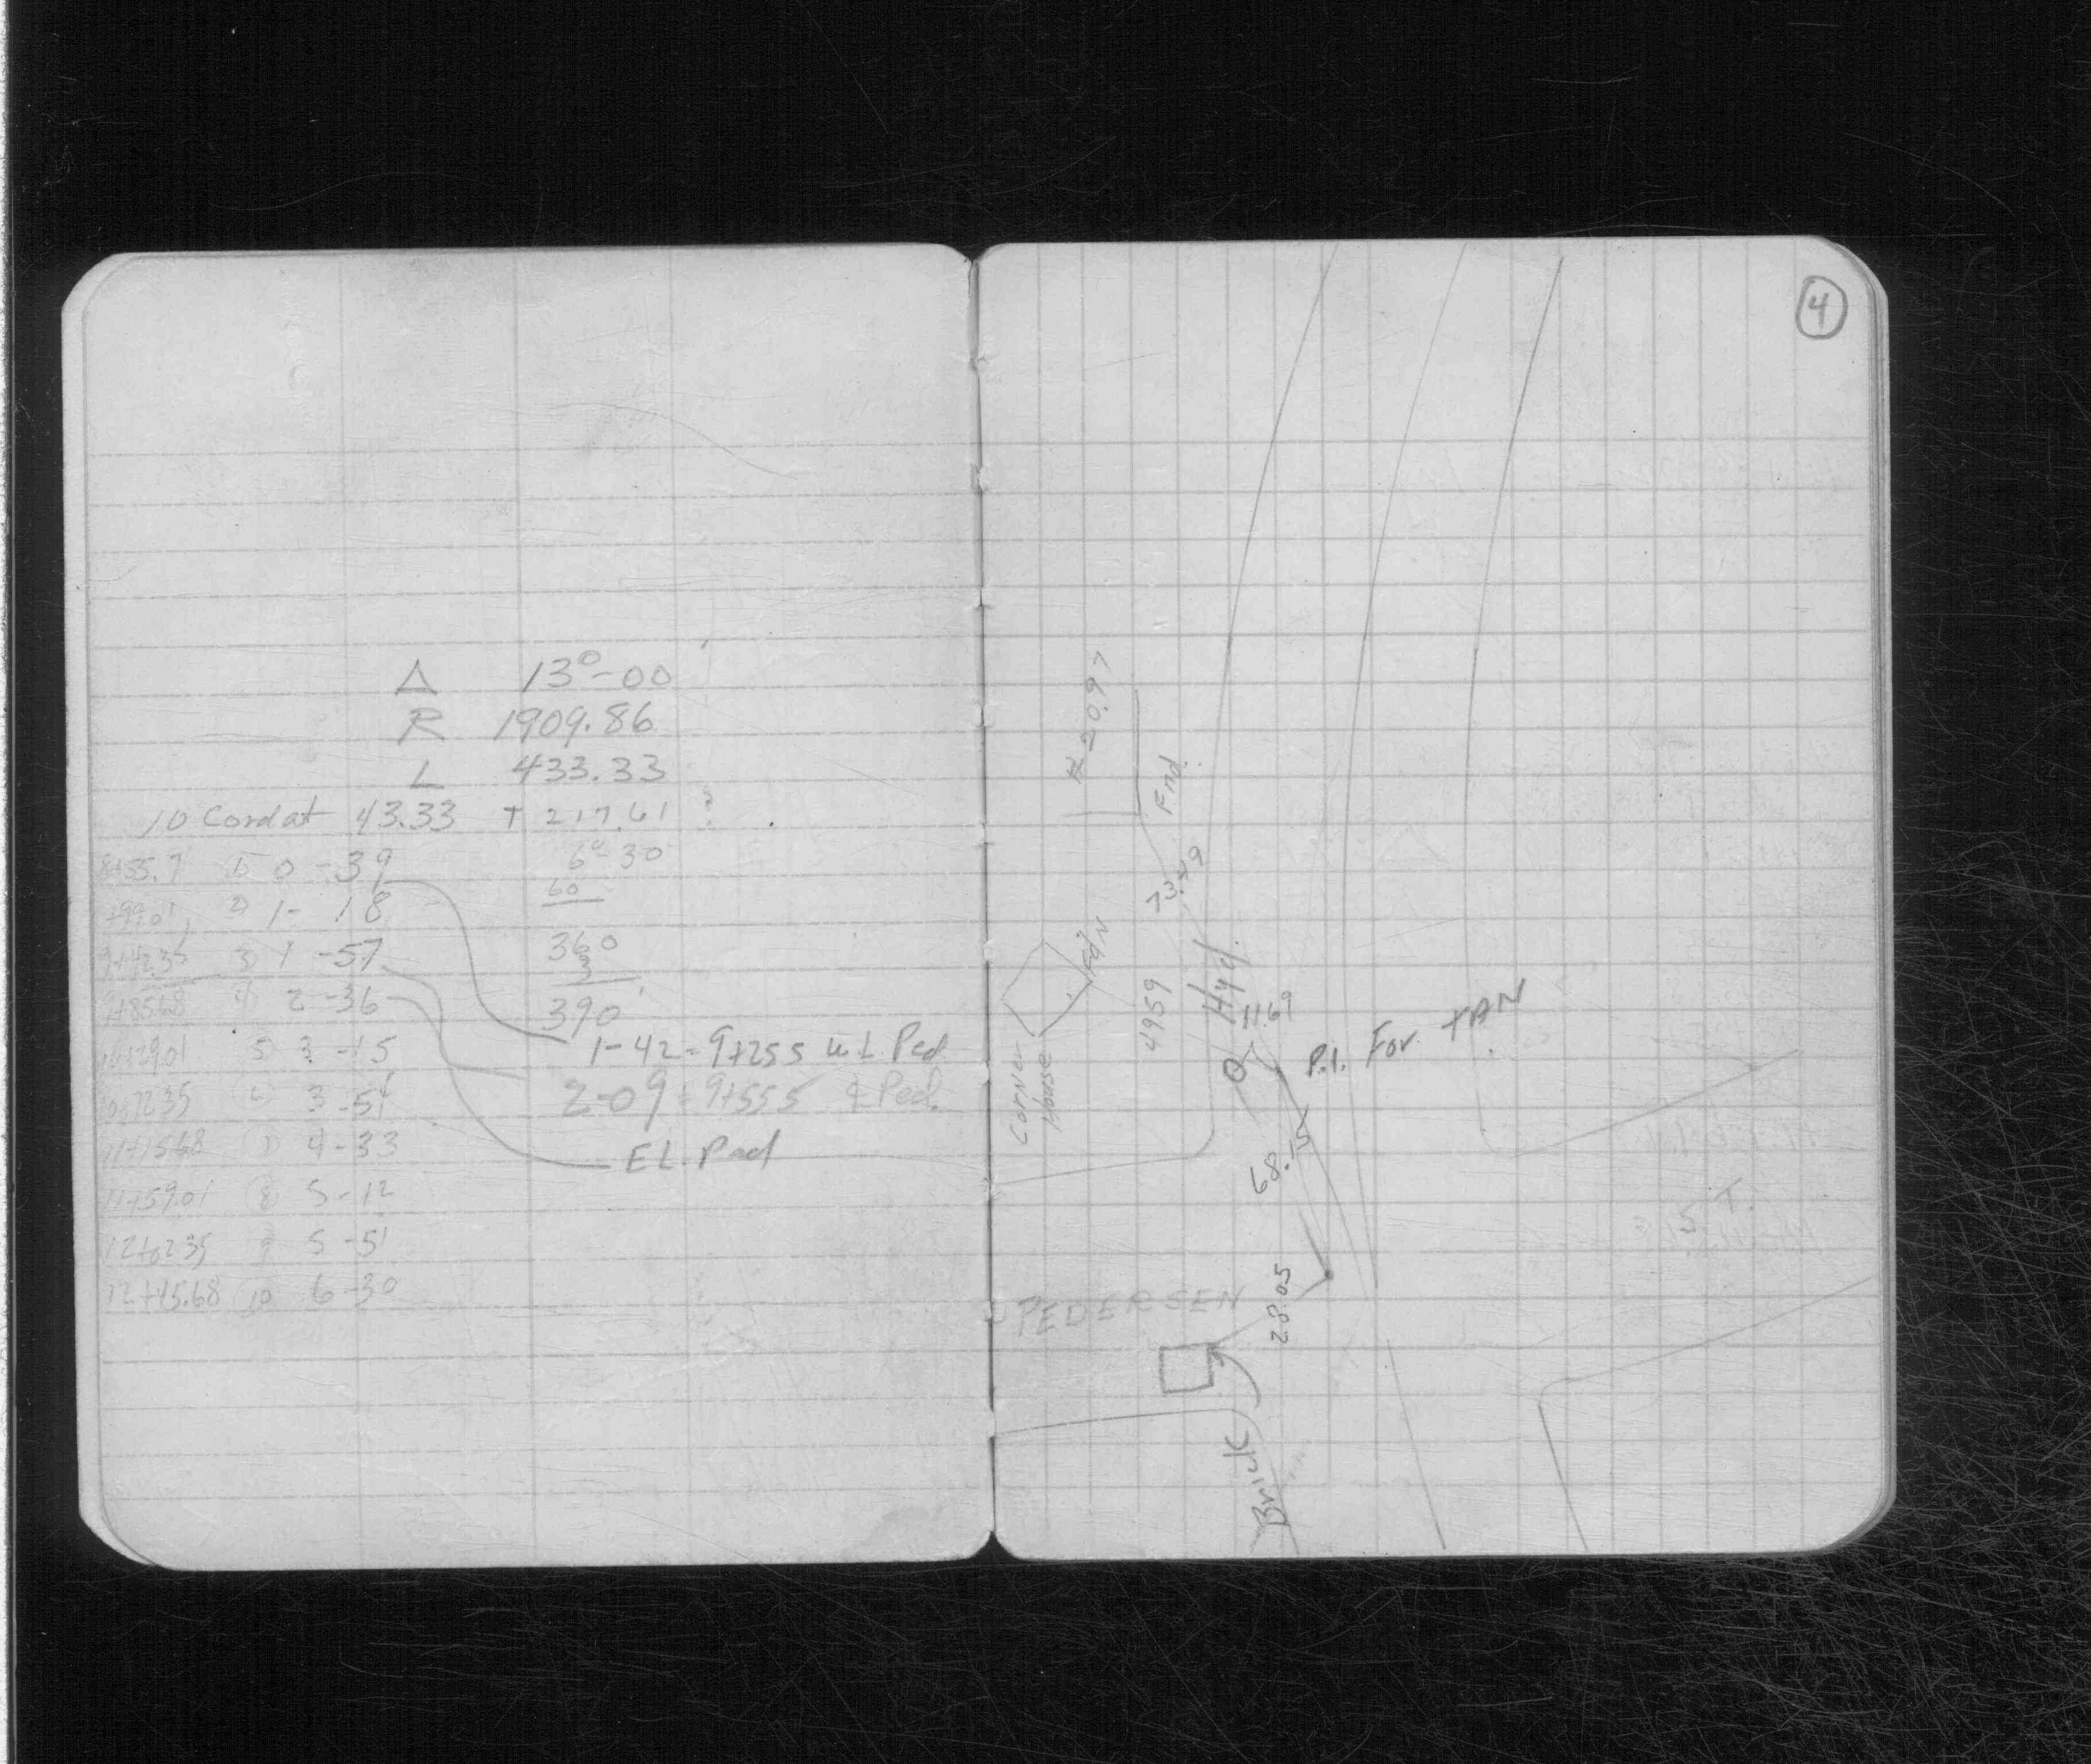 Δ 13°-00'
R 1909.86
L 433.33
10 Cord at 43.33 T 217.61 ?
8+55.7 1) 0-39 6°-30
+99.01 2) 1-18 60
9+42.35 3) 1-57 360
9+85.68 4) 2-36 390'
10+29.01 5) 3-15 1-42 = 9+255 W.L. Ped
10+72.35 6 3-54 2-09 = 9+555 ℄ Ped.
11+15.68 7) 4-33 E L. Ped
11+59.01 8 5-12
12+02.35 9 5-51
12+45.68 10 6-30
4
20.97
Fnd.
73.49
Fdn
4959
Hyd.
11.69
P.I. For TAN
Corner
House
68.15
28.05
PEDERSEN
Brick